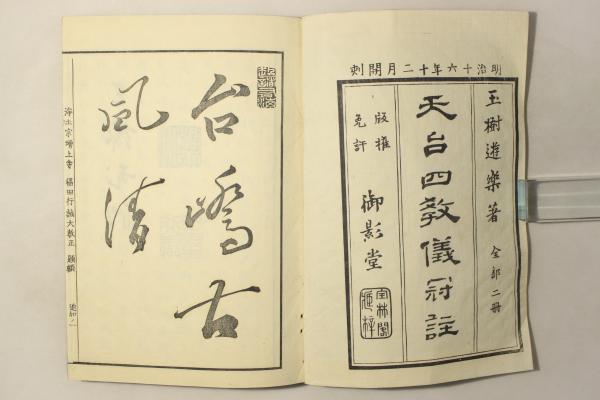 明治十六年十二月開刻
玉樹遊樂著 全部二冊
天台四教儀冠註
版權
免許
御影堂
台嶠古
風清
浄土宗増上寺 福田行誡大教正 題額